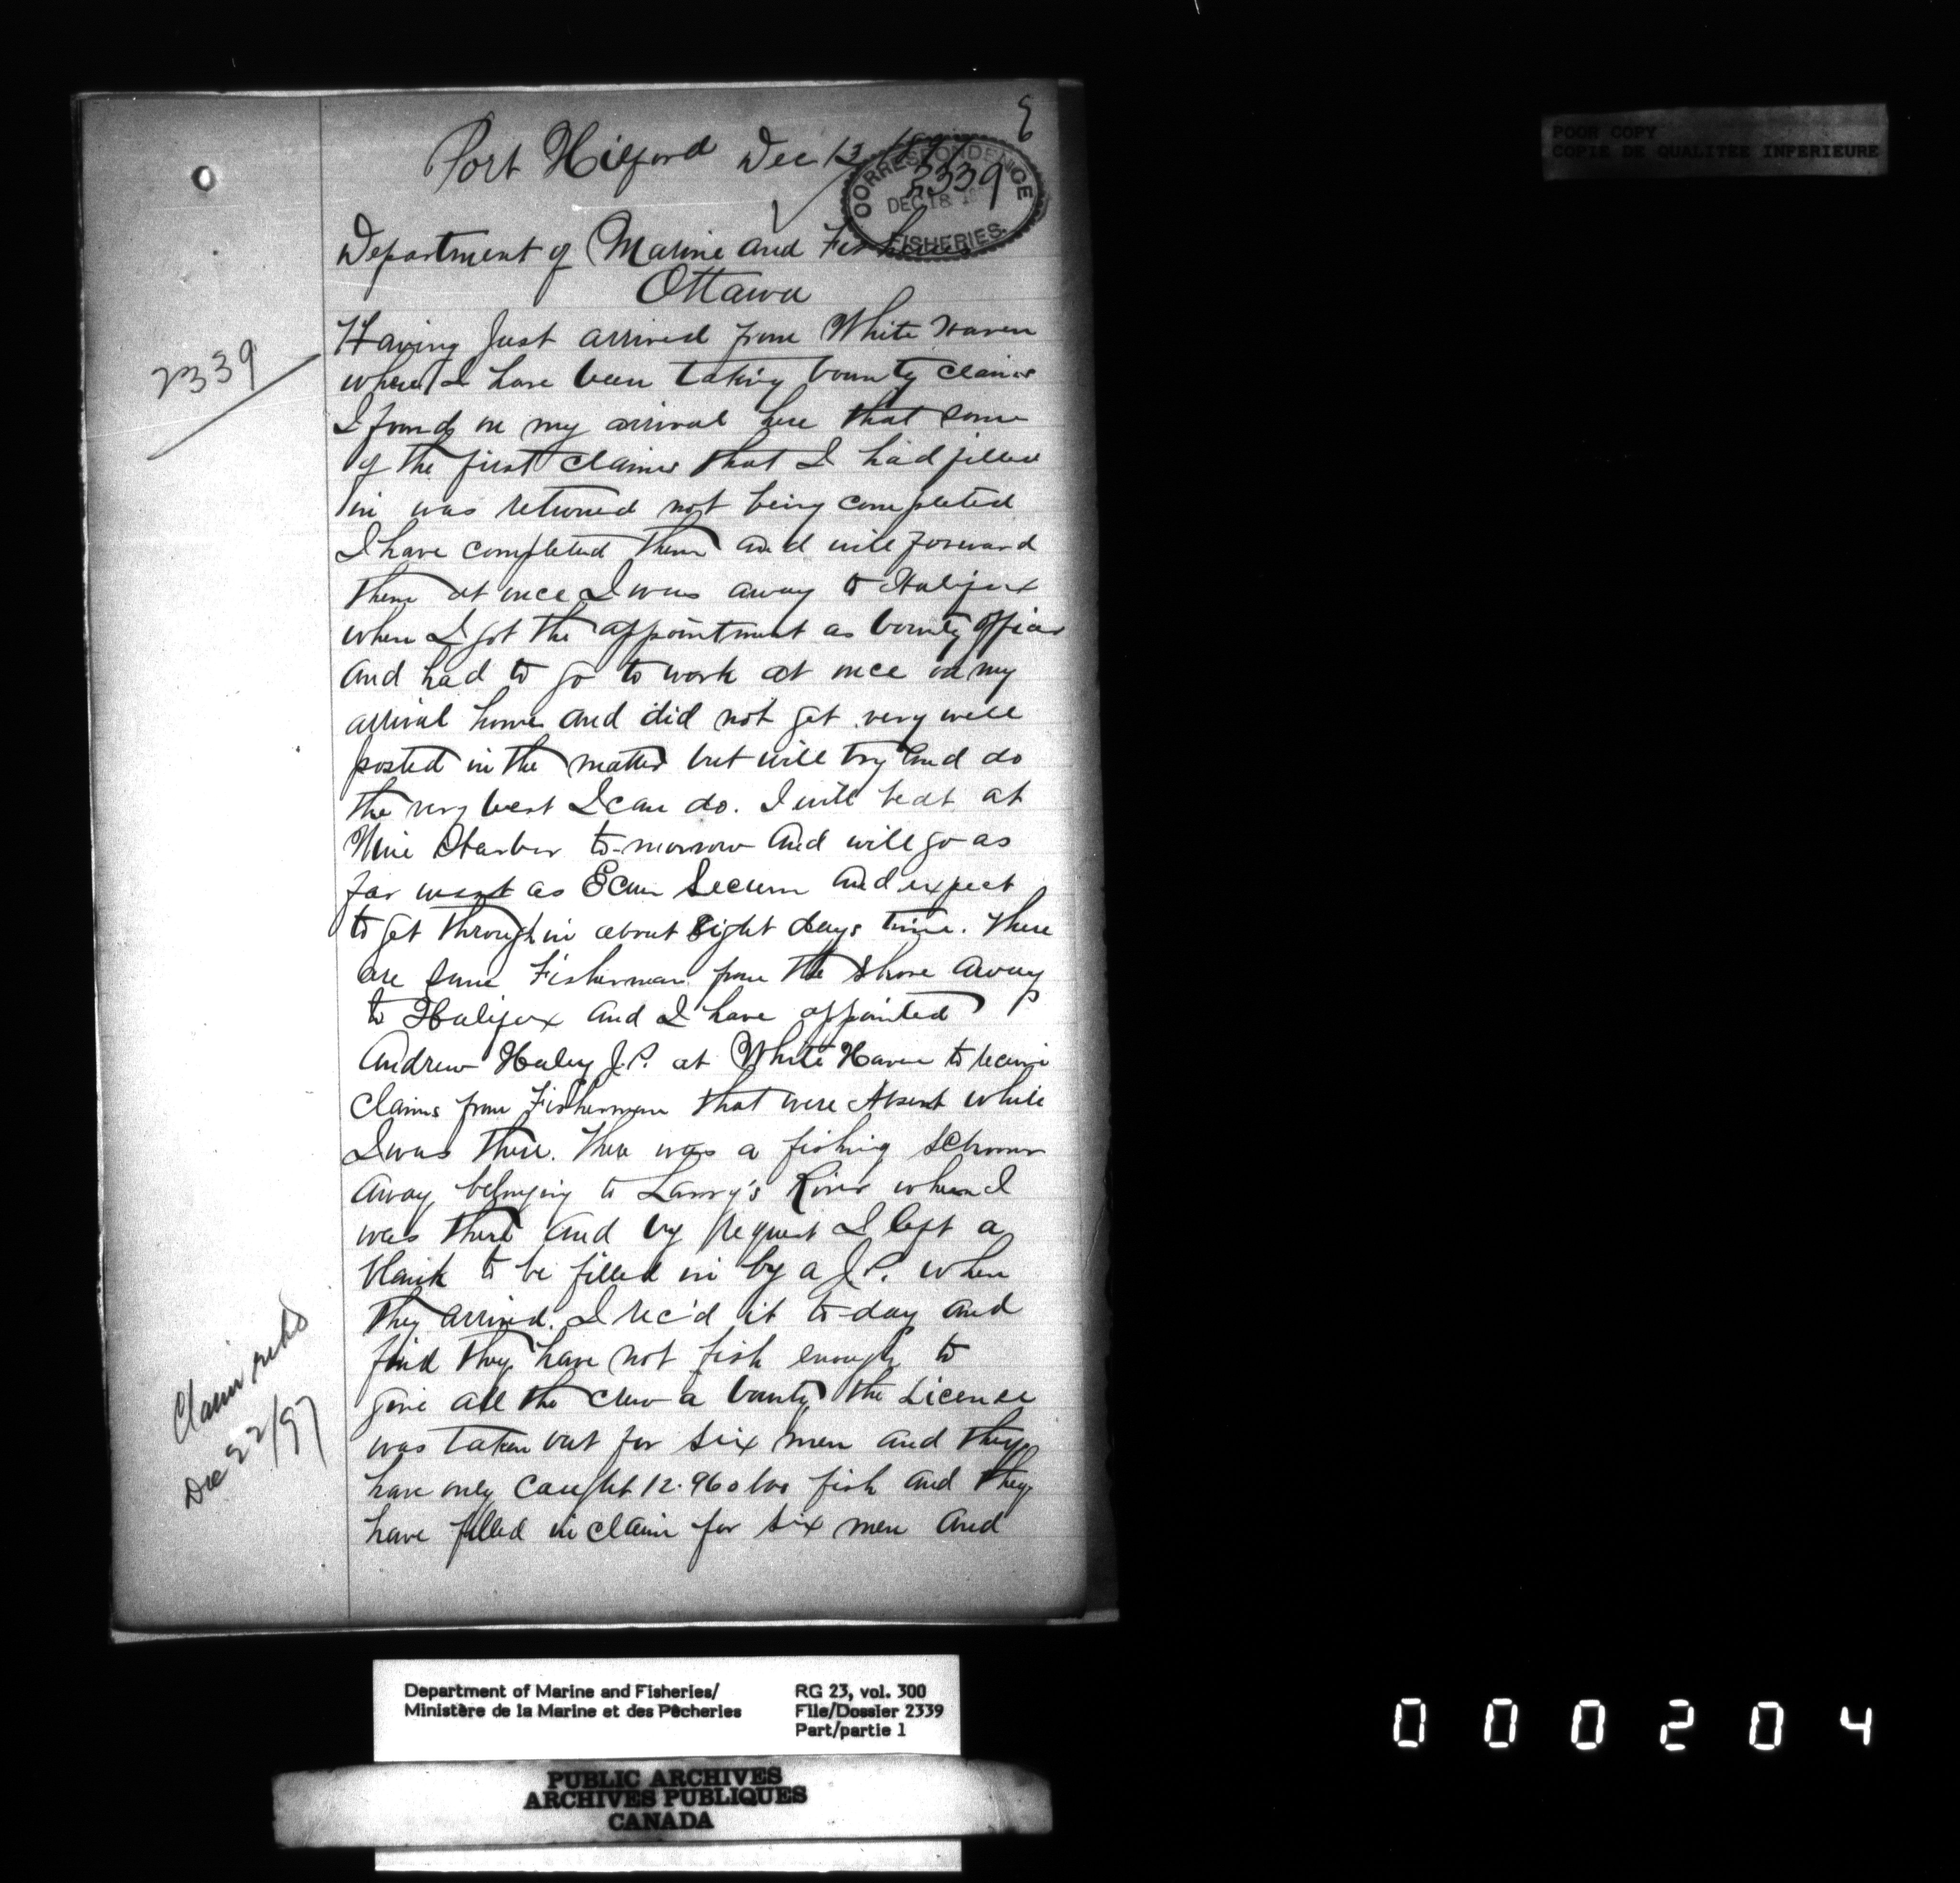 Port Hilford Dec 13
CORRESPONDENCE
2339
DEC 18
FISHERIES.
Department of Marine and Fisheries
Ottawa
2339
Having Just arrived from White Haven
where I have been taking bounty claims
I found on my arrival here that some
of the first claims that I had filled
in was returned not being completed
I have completed them and will forward
them at once I was away to Halifax
when I got the appointment as bounty officer
and had to go to work at once on my
arrival home and did not get very well
posted in the matter but will try and do
the very best I can do. I will be at
Wine Harbor to-morrow and will go as
far west as Ecum Secum and expect
to get through in about Eight days time. There
are some Fisherman from the shore away
to Halifax and I have appointed
Andrew Haley J.P. at White Haven to receive
claims from Fisherman that were Absent while
I was there. There was a fishing schooner
away belonging to Larry's River when I
was there and by request I left a
blank to be filled in by a J.P. when
they arrived. I rec'd it to-day and
find they have not fish enough to
give all the crew a bounty the Licence
was taken out for six men and they
have only caught 12.960 lbs fish and they
have filled in claim for six men and
Claim
Dec 22/97
POOR COPY
COPIE DE QUALITEE INFERIEURE
Department of Marine and Fisheries/
Ministère de la Marine et des Pêcheries
RG 23, vol. 300
File/Dossier 2339
Part/partie 1
PUBLIC ARCHIVES
ARCHIVES PUBLIQUES
CANADA
000204